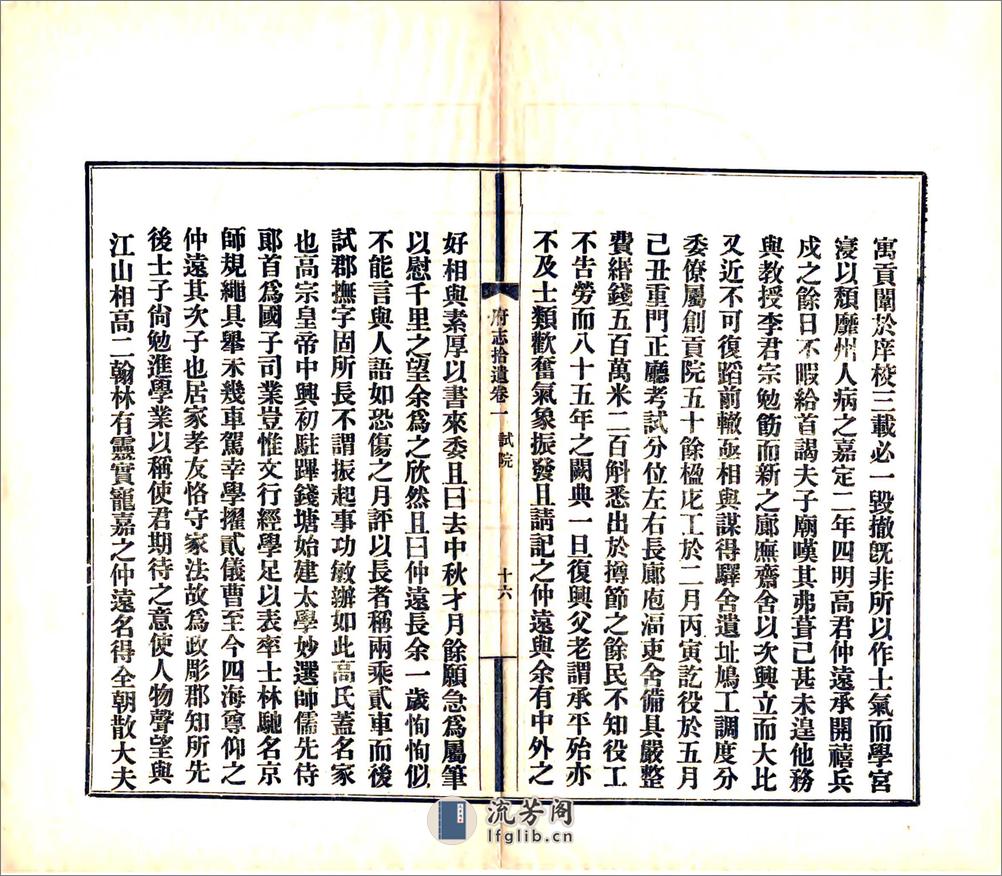 寓貢闈於庠校三載必一毀撤旣非所以作士氣而學宮
寖以頽靡州人病之嘉定二年四明高君仲遠承開禧兵
戍之餘日不暇給首謁夫子廟嘆其弗葺已甚未遑他務
與敎授李君宗勉飭而新之廊廡齋舍以次興立而大比
又近不可復蹈前轍亟相與謀得驛舍遺址鳩工調度分
委僚屬創貢院五十餘楹庀工於二月丙寅訖役於五月
己丑重門正廳考試分位左右長廊庖湢吏舍備具嚴整
費緡錢五百萬米二百斛悉出於撙節之餘民不知役工
不吿勞而八十五年之闕典一旦復興父老謂承平殆亦
不及士類歡奮氣象振發且請記之仲遠與余有中外之
府志拾遺卷一 試院 十六
好相與素厚以書來委且曰去中秋才月餘願急爲屬筆
以慰千里之望余爲之欣然且曰仲遠長余一歲恂恂似
不能言與人語如恐傷之月評以長者稱兩乘貳車而後
試郡撫字固所長不謂振起事功敏辦如此高氏蓋名家
也高宗皇帝中興初駐蹕錢塘始建太學妙選師儒先侍
郞首爲國子司業豈惟文行經學足以表率士林馳名京
師規繩具舉未幾車駕幸學擢貳儀曹至今四海尊仰之
仲遠其次子也居家孝友恪守家法故爲政彫郡知所先
後士子尙勉進學業以稱使君期待之意使人物聲望與
江山相高二翰林有靈實寵嘉之仲遠名得全朝散大夫
流芳阁
lfglib.cn